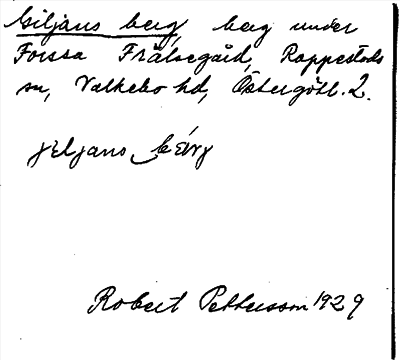 Giljans berg, berg under
Forssa Frälsegård, Rappestads
sn, Valkebo hd, Östergötl. 2.
jɛljans bærj
Robert Pettersson 1929